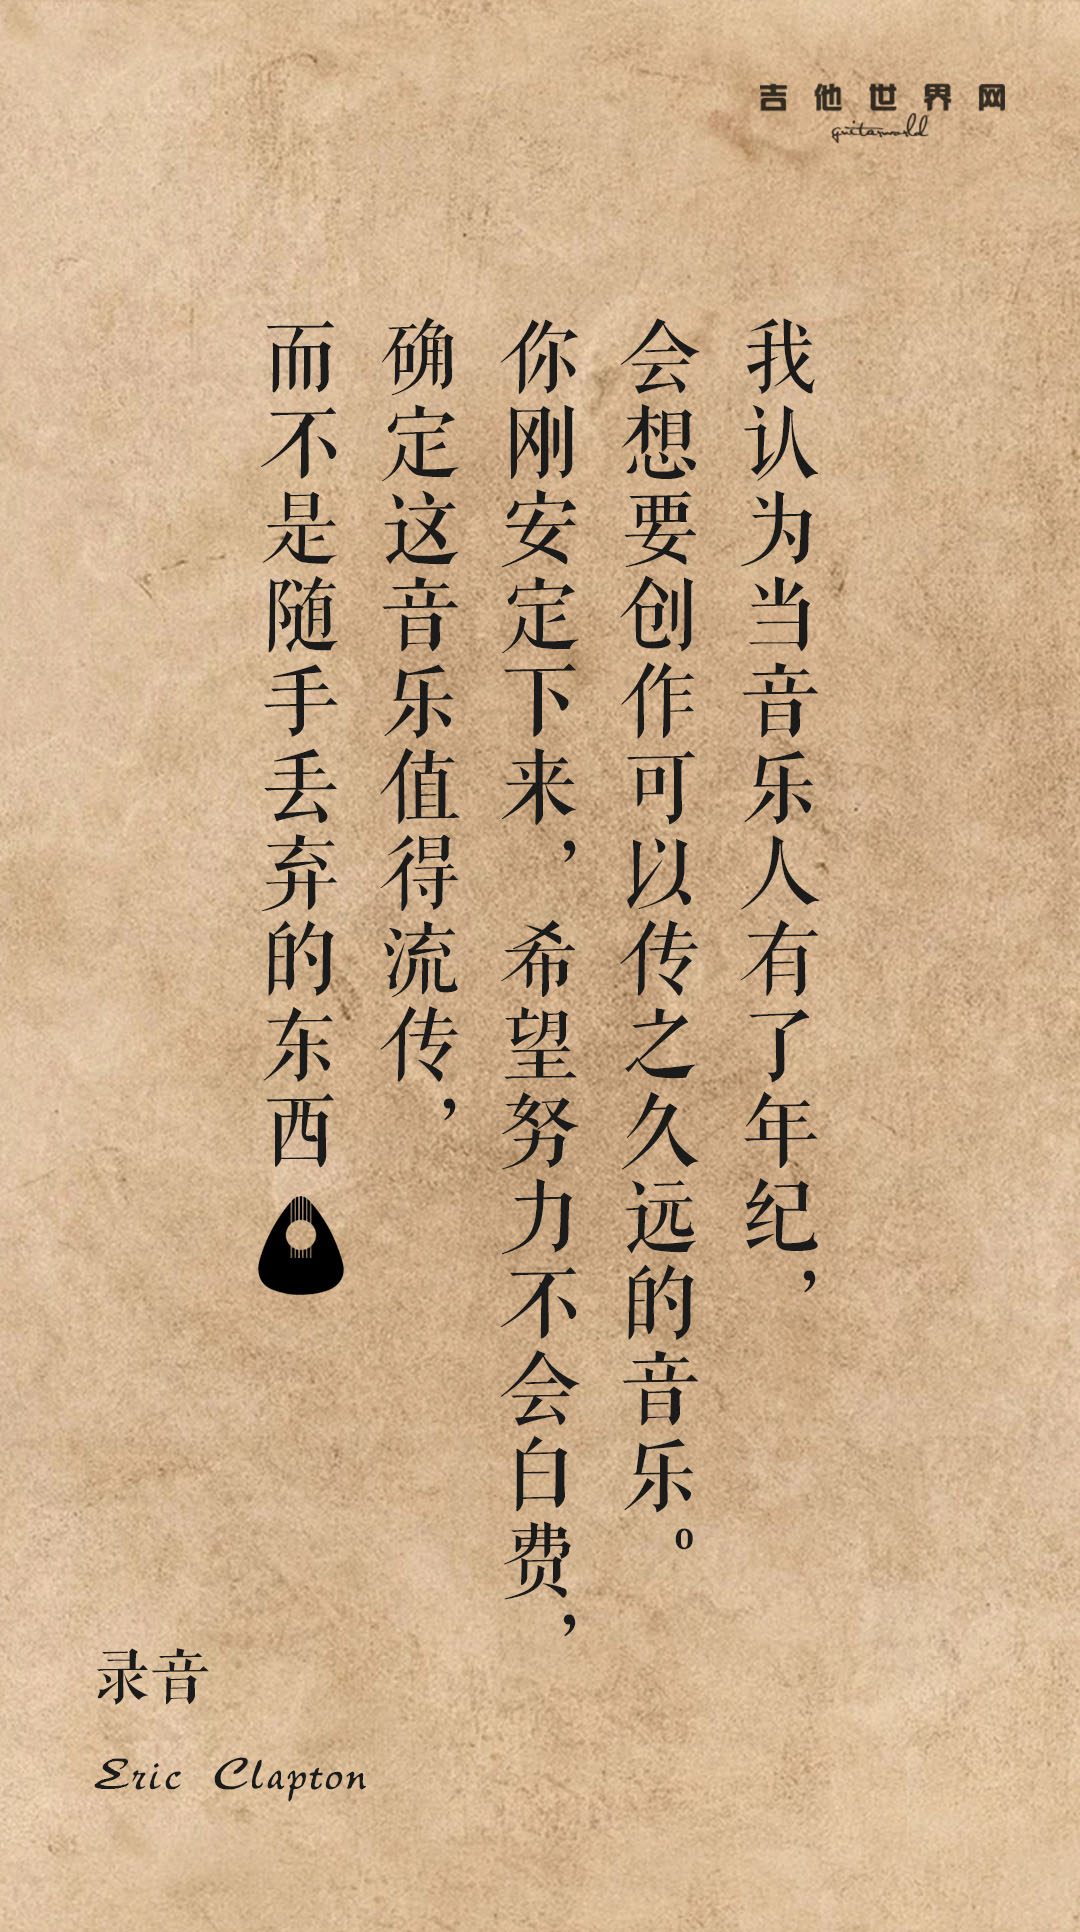 吉他世界网
guitarworld
我认为当音乐人有了年纪，
会想要创作可以传之久远的音乐。
你刚安定下来，希望努力不会白费，
确定这音乐值得流传，
而不是随手丢弃的东西
录音
Eric Clapton